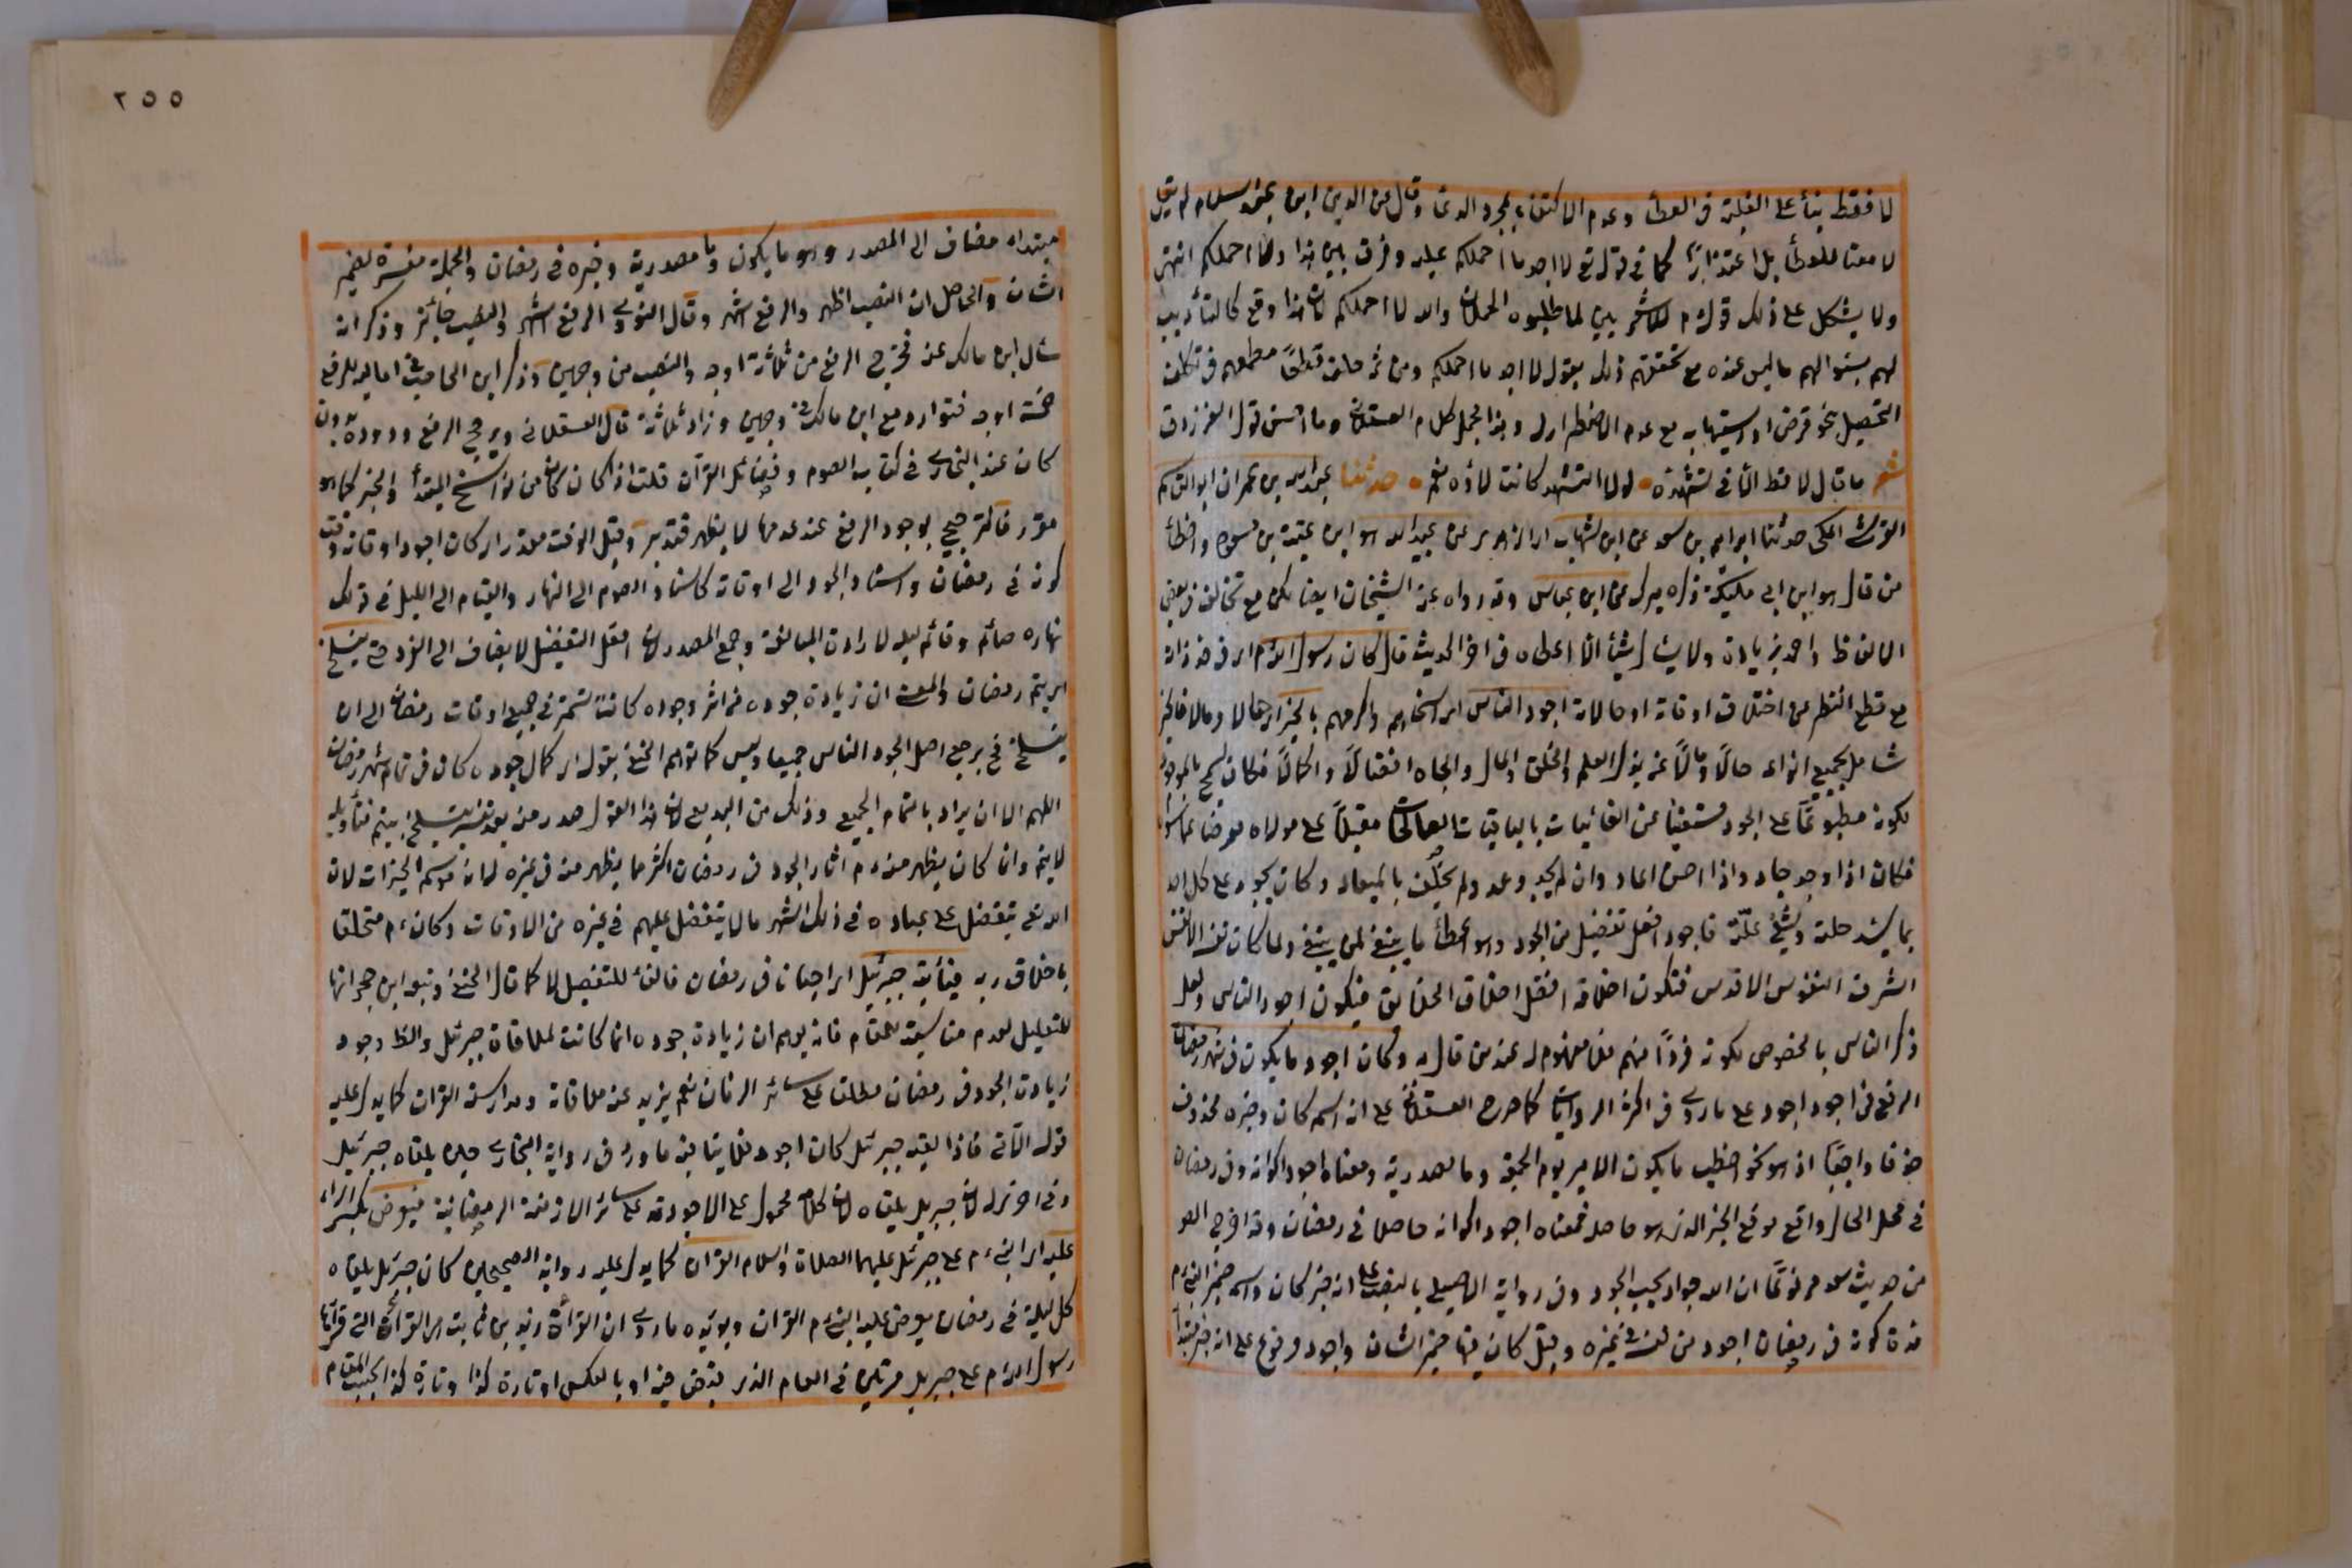 لا فقط بناء على الغلبة في العطاء وعدم الاكتفاء بمجرد الدعاء وقال عز الدين ابن عبد السلام لم يقل
لا منعا للعطاء بل اعتذارا كما في قوله تع لا اجد ما احملكم عليه وفرق بين هذا ولا احملكم انتهى
ولا يشكل على ذلك قوله م للاشعريين لما طلبوه الحملان والله لا احملكم لان هذا وقع كالتأديب
لهم بسئوالهم ما ليس عنده مع تحققهم ذلك بقوله لا اجد ما احملكم ومن ثم حلف قطعا لطمعهم في تكلف
التحصيل بنحو قرض او استيهاب مع عدم الاضطرار وهذا مجمل كلام العسقلاني وما احسن قول الفرزدق
شعر ما قال لا قط الا في تشهده لولا التشهد كانت لاؤه نعم حدثنا عبد الله بن عمران ابو القاسم
القرشي المكي حدثنا ابراهيم بن سعد عن ابن شهاب اي الزهري عن عبيد الله هو ابن عتبة بن مسعود واخطأ
من قال هو ابن ابي مليكة ذكره ميرك عن ابن عباس وقد رواه عنه الشيخان ايضا لكن مع تخالف في بعض
الالفاظ واحمد بزيادة ولا يسئل شيئا الا اعطاه في اخر الحديث قال كان رسول الله م اي في حد ذاته
مع قطع النظر عن اختلاف اوقاته او حالاته اجود الناس اي اسخاهم واكرمهم بالخير اي حالا ومالا فالخير
شامل لجميع انواعه حالا ومالا من بذل العلم والخلق والمال والجاه افضالا واكمالا فكان يسمح بالموجود
لكونه مطبوعا على الجود مستغنيا عن الفانيات بالباقيات الصالحات مقبلا على مولاه معرضا عما سواه
فكان اذا وجد جاد واذا احسن اعاد وان لم يجد وعد ولم يخلف بالميعاد وكان يجود على كل احد
بما يسد خلته ويشفي علته فاجود افعل تفضيل من الجود وهو اعطاء ما ينبغي لمن ينبغي ولما كان نفسه الانفس
اشرف النفوس الاقدس فتكون اخلاقه افضل اخلاق الخلائق فيكون اجود الناس ولعل
ذكر الناس بالخصوص لكونه فردا منهم فلا مفهوم له عند من قال به وكان اجود ما يكون في شهر رمضان
الرفع في اجود اجود على ما روي في اكثر الروايات كما صرح العسقلاني على انه اسم كان وخبره محذوف
حذفا واجبا اذ هو نحو اخطب ما يكون الامير يوم الجمعة وما مصدرية ومعناه اجود اكوانه وفي رمضان
في محل الحال واقع موقع الخبر الذي هو حاصل فمعناه اجود اكوانه حاصلا في رمضان وقد اخرج
من حديث سعد مرفوعا ان الله جواد يحب الجود وفي رواية الاصيلي بالنصب على انه خبر كان واسمه ضمير النبي م
مدة كونه في رمضان اجود من نفسه في غيره وقيل كان فيها ضمير الشان واجود مرفوع على انه مبتدأ
٢٥٥
مبتداه مضاف الى المصدر وهو ما يكون وما مصدرية وخبره في رمضان والجملة مفسرة لضمير
الشان والحاصل ان النصب اظهر والرفع اشهر وقال النووي الرفع اشهر والنصب جائز وذكر انه
سأل ابن مالك عنه فخرج الرفع من ثلاثة اوجه والنصب من وجهين وذكر ابن الحاجب في اماليه للرفع
خمسة اوجه فتوارد مع ابن مالك في وجهين وزاد ثلاثة قال العسقلاني ويرجح الرفع وروده بدون
كان عند البخاري في كتاب الصوم وفضائل القرآن قلت اذ كان كان من نواسخ المبتدأ والخبر كما هو
مقرر فالترجيح لوجود الرفع عند عدمها لا يظهر فتدبر وقيل الوقت مقدر اي كان اجود اوقاته وقت
كونه في رمضان واسناد الجود الى اوقاته كاسناد الصوم الى النهار والقيام الى الليل في قولك
نهاره صائم وقائم ليله لارادة المبالغة وجمع المصدر لان افعل التفضيل لا يضاف الى المفرد حتى ينسلخ
اي يتم رمضان والمعنى ان زيادة جوده في اثر وجوده كانت تستمر في جميع اوقات رمضان الى ان
ينسلخ فح يرجع اصل الجود الناس جميعا وليس كما توهم الحنفي بقوله اي كمال جوده كان في تمام شهر رمضان
اللهم الا ان يراد بالتمام الجميع وذلك من البديع لان هذا القول صدر منه بعد تفسير ينسلخ يتم فتأويله
لا يتم وان كان يظهر منه م اثار الجود في رمضان اكثر مما يظهر منه في غيره لانه موسم الخيرات لان
الله تع يتفضل على عباده في ذلك الشهر ما لا يتفضل عليهم في غيره من الاوقات وكان م متخلقا
باخلاق ربه فيأتيه جبرئيل اي احيانا في رمضان فالفاء للتفصيل لا كما قال الحنفي وتبعه ابن حجر انها
للتعليل لعدم مناسبته للمقام فانه يوهم ان زيادة جوده انما كانت لملاقاة جبرئيل والظ وجود
زيادة الجود في رمضان مطلقا على سائر الزمان نعم يزيد عند ملاقاته ومدارسته القران كما يدل عليه
قوله الآتي فاذا لقيه جبرئيل كان اجود فلا ينافيه ما ورد في رواية البخاري حين يلقاه جبرئيل
وفي اخرى له لان جبريل يلقاه لان الكلام محمول على الاجودية على سائر الازمنة الرمضانية فيعرض بكسر الراء
عليه اي النبي م على جبرئيل عليهما الصلاة والسلام القران كما يدل عليه رواية الصحيحين كان جبرئيل يلقاه
كل ليلة في رمضان يعرض عليه النبي م القران ويؤيده ما روي ان القرأة زيد بن ثابت هي القراءة التي قرأها
رسول الله م على جبريل مرتين في العام الذي قبض فيه او بالعكس او تارة كذا وتارة كذا بحسب المقام